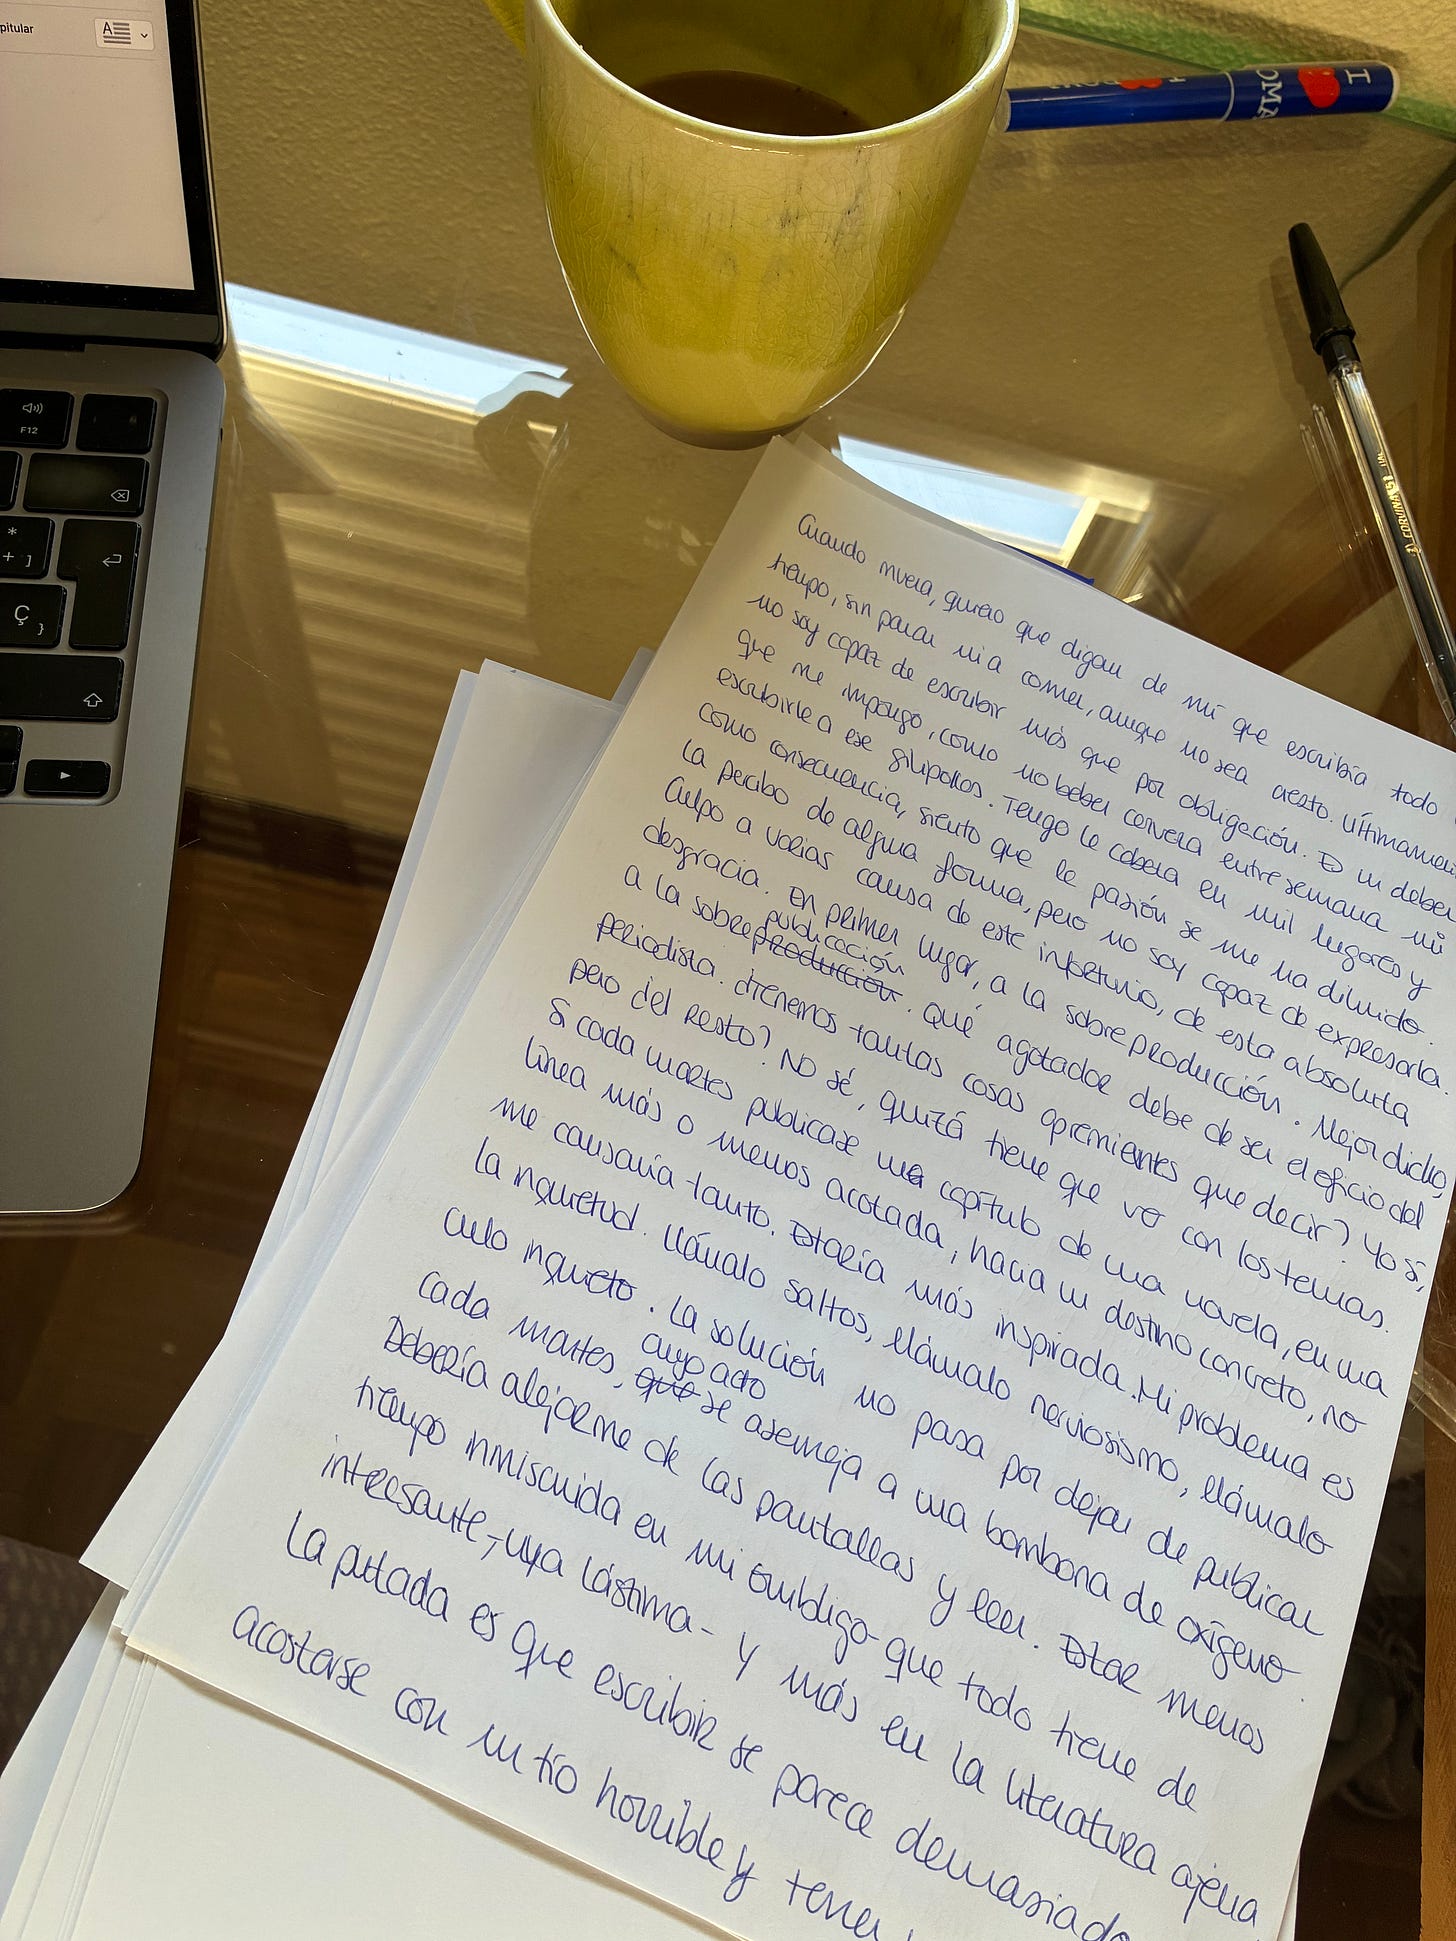 pitular
A
F12
*
+ ]
Ç }
I ♥ ROMA
I ♥ ROMA
CORVINA 51
Cuando muera, quiero que digan de mí que escribía todo
tiempo, sin parar ni a comer, aunque no sea cierto. Últimamen
no soy capaz de escribir más que por obligación. Es un deber
que me impongo, como no beber cerveza entre semana ni
escribirle a ese gilipollas. Tengo la cabeza en mil lugares y
como consecuencia, siento que la pasión se me ha diluido.
La percibo de alguna forma, pero no soy capaz de expresarla.
Culpo a varias causa de este infortunio, de esta absoluta
desgracia. En primer lugar, a la sobreproducción. Mejor dicho,
a la sobreproducción publicación. Qué agotador debe de ser el oficio del
periodista. ¿Tenemos tantas cosas apremiantes que decir? Yo sí,
pero ¿del resto? No sé, quizá tiene que ver con los temas.
Si cada martes publicase un capítulo de una novela, en una
línea más o menos acotada, hacia un destino concreto, no
me causaría tanto. Estaría más inspirada. Mi problema es
la inquietud. Llámalo saltos, llámalo nerviosismo, llámalo
culo inquieto. La solución no pasa por dejar de publicar
cada martes, que cuyo acto se asemeja a una bombona de oxígeno.
Debería alejarme de las pantallas y leer. Estar menos
tiempo inmiscuida en mi ombligo -que todo tiene de
interesante, -uya lástima- y más en la literatura ajena
La putada es que escribir se parece demasiado
acostarse con un tío horrible y tener